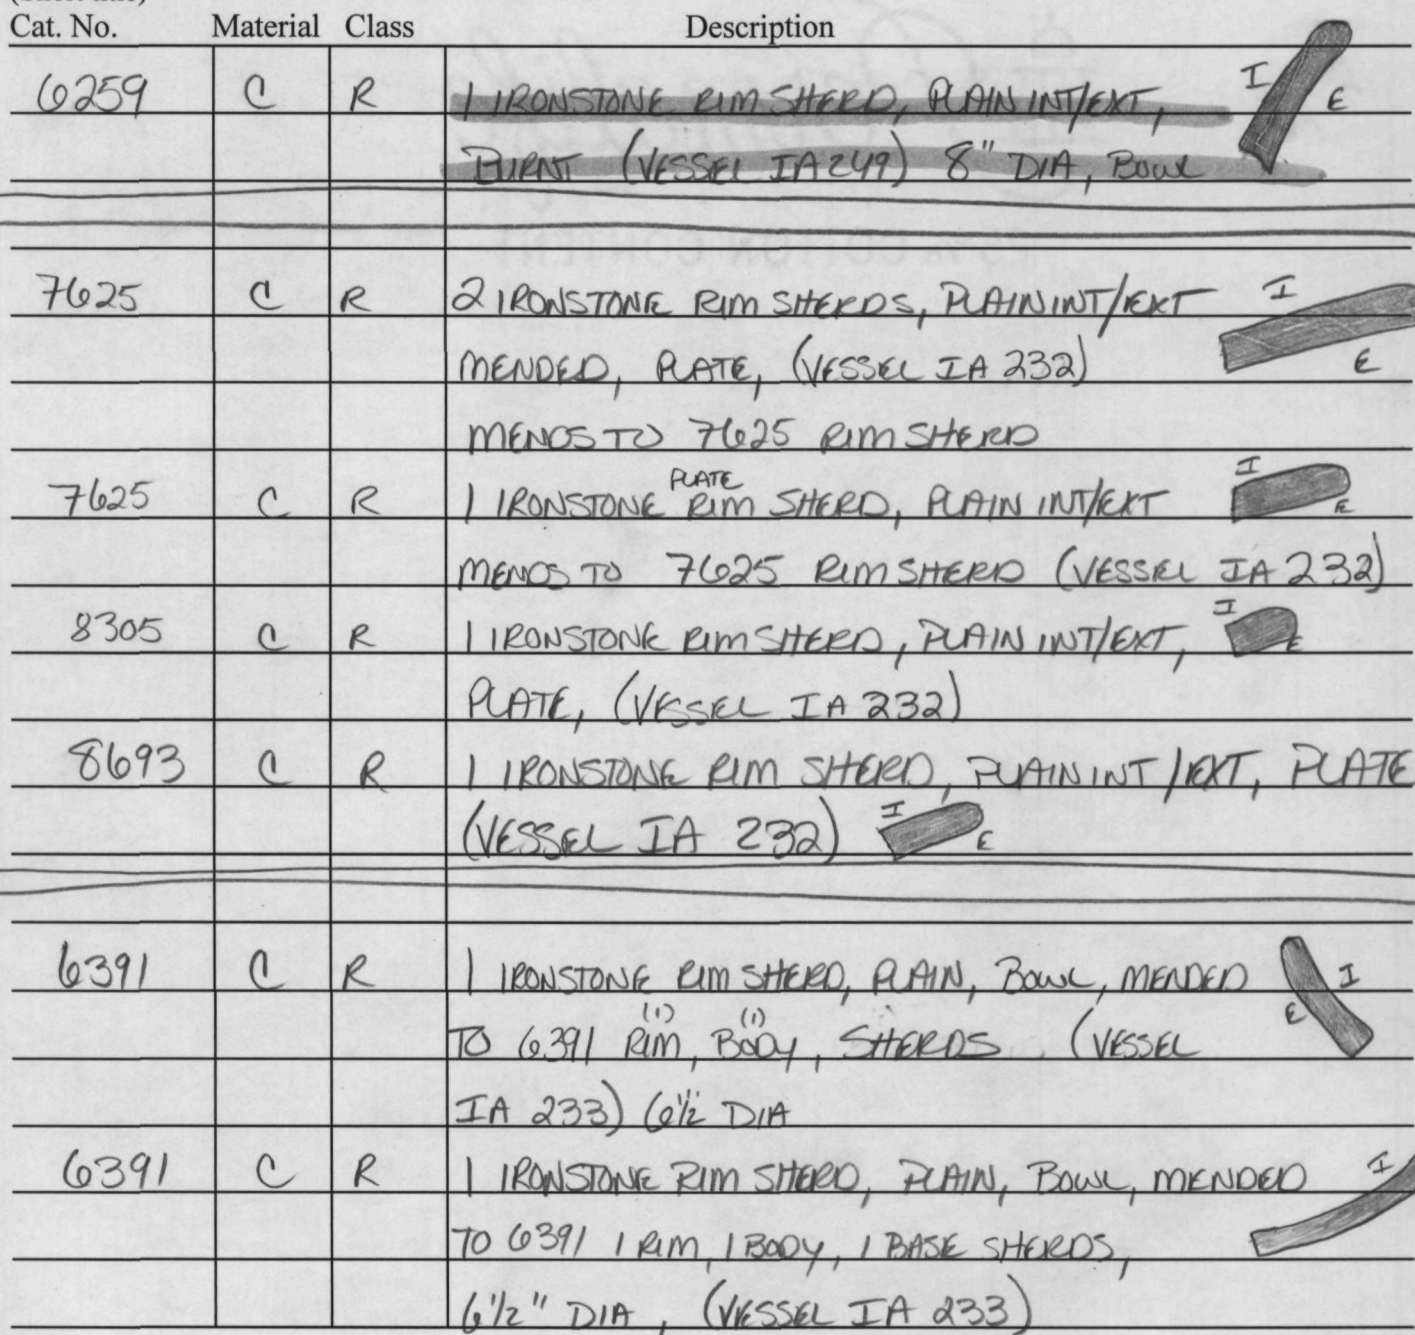 Cat. No. Material Class Description
6259 C R 1 IRONSTONE RIM SHERD, PLAIN INT/EXT, I E
BURNT (VESSEL IA249) 8" DIA, BOWL
7625 C R 2 IRONSTONE RIM SHERDS, PLAIN INT/EXT I
MENDED, PLATE, (VESSEL IA 232) E
MENDS TO 7625 RIM SHERD
PLATE I
7625 C R 1 IRONSTONE RIM SHERD, PLAIN INT/EXT E
MENDS TO 7625 RIM SHERD (VESSEL IA 232)
8305 C R 1 IRONSTONE RIM SHERD, PLAIN INT/EXT, I E
PLATE, (VESSEL IA 232)
8693 C R 1 IRONSTONE RIM SHERD, PLAIN INT/EXT, PLATE
(VESSEL IA 232) I E
6391 C R 1 IRONSTONE RIM SHERD, PLAIN, BOWL, MENDED I
(1) (1) E
TO 6391 RIM, BODY, SHERDS (VESSEL
IA 233) 6½ DIA
6391 C R 1 IRONSTONE RIM SHERD, PLAIN, BOWL, MENDED I
TO 6391 1 RIM, 1 BODY, 1 BASE SHERDS,
6½" DIA, (VESSEL IA 233)